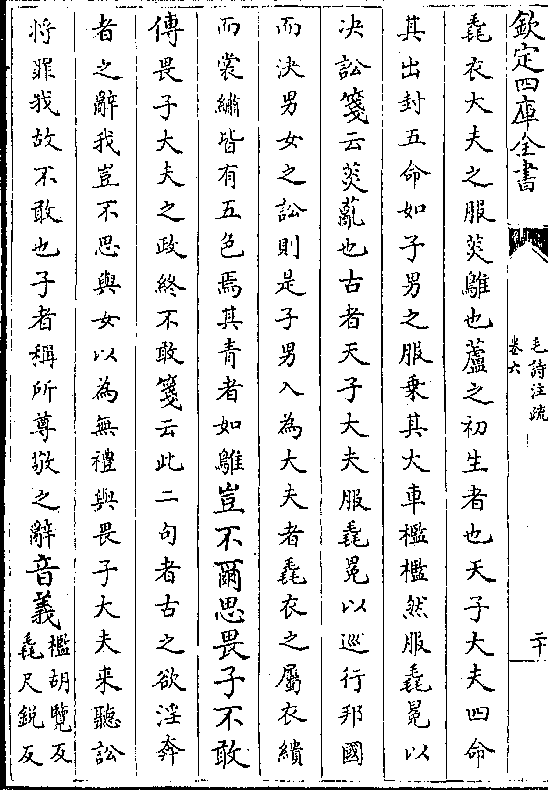 欽定四庫全書
毛詩注疏
卷六
二十
毳衣大夫之服菼鵻也蘆之初生者也天子大夫四命
其出封五命如子男之服乗其大車檻檻然服毳冕以
决訟箋云菼薍也古者天子大夫服毳冕以巡行邦國
而決男女之訟則是子男入為大夫者毳衣之屬衣繢
而裳繡皆有五色焉其青者如鵻豈不爾思畏子不敢
傳畏子大夫之政終不敢箋云此二句者古之欲淫奔
者之辭我豈不思與女以為無禮與畏子大夫来聽訟
将罪我故不敢也子者稱所尊敬之辭音義檻胡覽反
毳尺鋭反